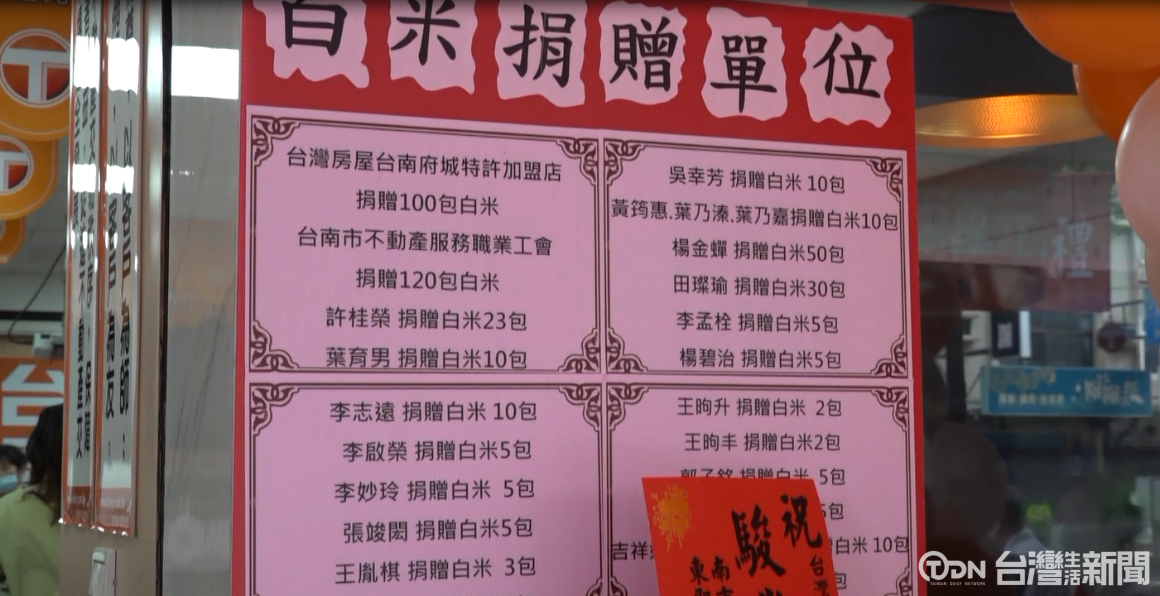 白米捐贈單位
台灣房屋台南府城特許加盟店
捐贈100包白米
台南市不動產服務職業工會
捐贈120包白米
許桂榮 捐贈白米23包
葉育男 捐贈白米10包
吳幸芳 捐贈白米 10包
黃筠惠.葉乃溱.葉乃嘉捐贈白米10包
楊金蟬 捐贈白米50包
田璨瑜 捐贈白米30包
李孟栓 捐贈白米5包
楊碧治 捐贈白米5包
李志遠 捐贈白米 10包
李啟榮 捐贈白米5包
李妙玲 捐贈白米 5包
張竣閎 捐贈白米5包
王胤棋 捐贈白米 3包
王昫升 捐贈白米 2包
王昫丰 捐贈白米2包
郭子銘 捐贈白米 5包
5包
吉祥
白米 10包
包
祝
駿
台灣
東南
禮
台
T
TDN
TAIWAN DAILY NETWORK
台灣生活新聞